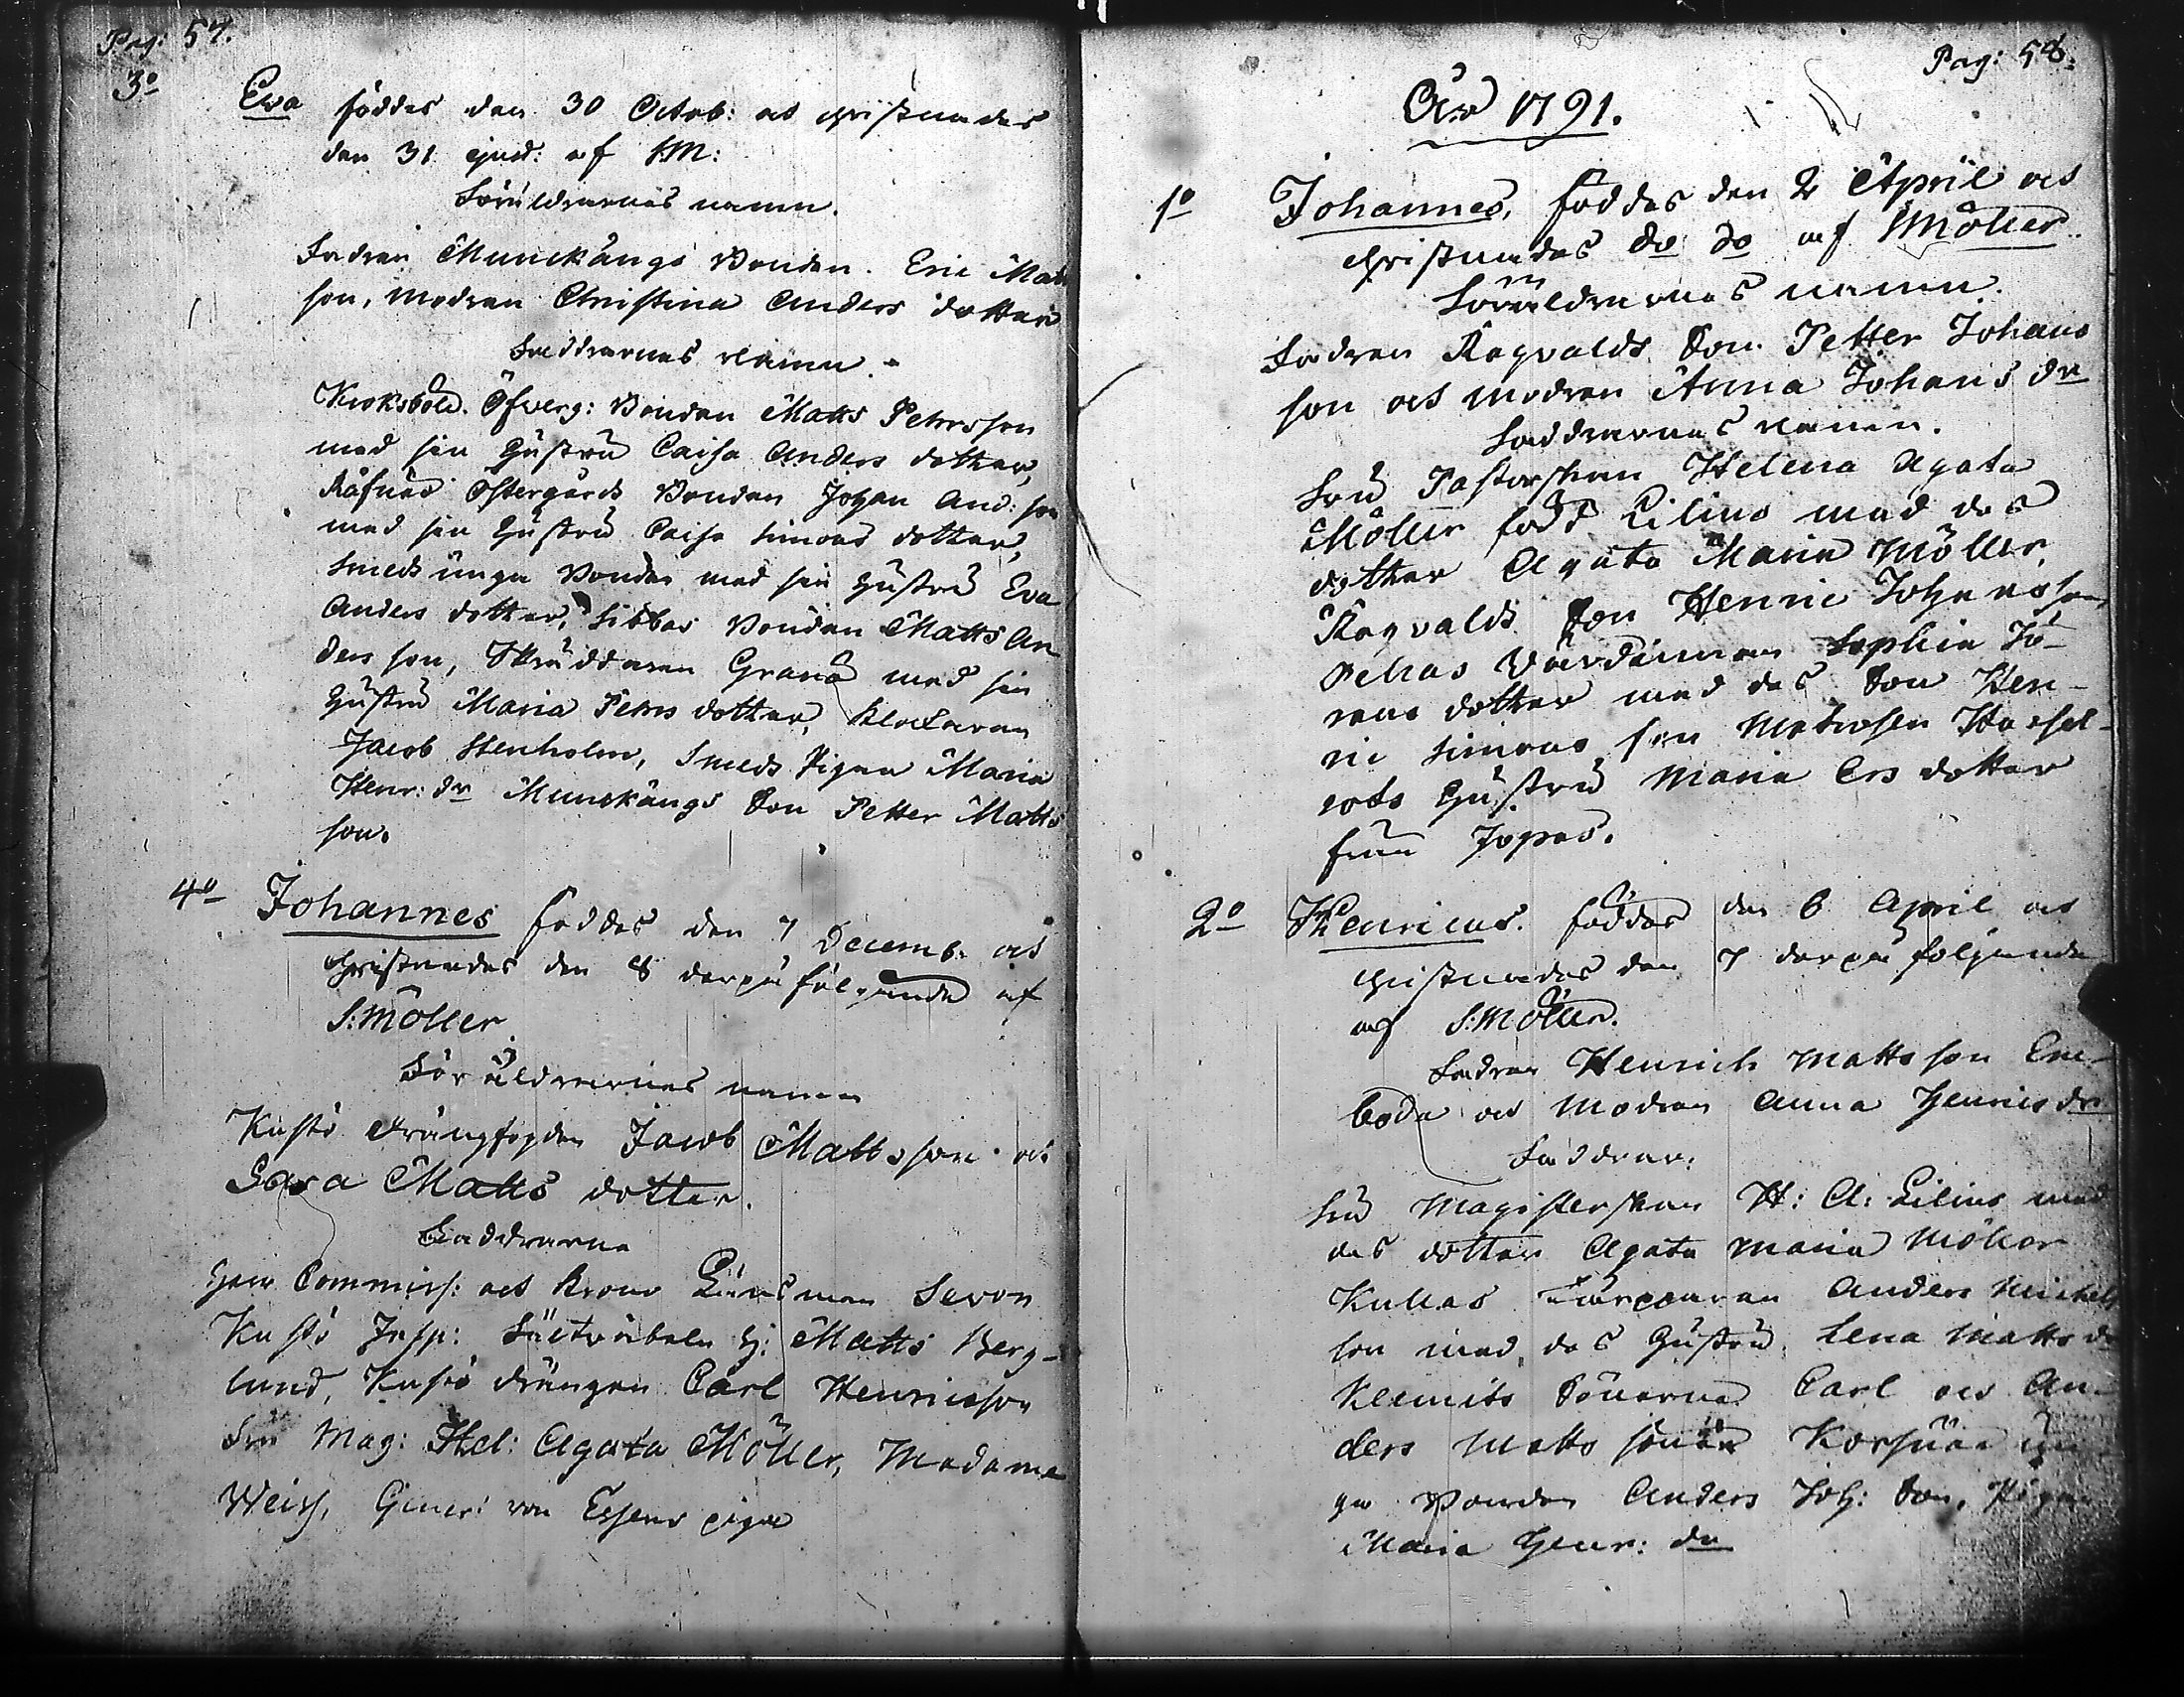 Pag: 57.
3o
Eva föddes den 30 Octob: och christnades
den 31 ejusd: af SM:
Föräldrarnes namn.
Fadren Munckängs Bonden Eric Mats
son, modren Christina Anders dotter
Faddrarnes namn.
Kroksböle Öfverg: Bonden Matts Petersson
med sin Hustru Caisa Anders dotter,
Råfnäs Östergårds Bonden Johan And: son
med sin Hustru Caisa Simons dotter,
Smeds unga Bonden med sin Hustru Eva
Anders dotter, Sibbas Bonden Matts An
ders son, Skräddaren Granö med sin
Hustru Maria Peters dotter, Klockaren
Jacob Stenholm, Smeds Pigan Maria
Henr: dr Munckängs Son Petter Matts
son.
4o Johannes föddes den 7 Decemb. och
christnades den 8 derpå följande af
S: Möller
Föräldrarnes namn
Kustö drängfogden Jacob Mattsson och
Sara Matts dotter.
Faddrarne
Herr Commiss: och Krono Länsman Sevon
Kustö Insp: Fältväbeln H: Matts Berg-
lund, Kustö drängen Carl Henricsson
Fru Mag: Hel: Agata Möller, Madame
Weiss, Gener: von Essens piga
Pag: 58.
År 1791.
1o Johannes, föddes den 2 April och
christnades do do af Möller.
Föräldrarnes namn.
Fadren Ragvalds Son Petter Johans
son och modren Anna Johans dr
Faddrarnes namn.
Fru Pastorskan Helena Agata
Möller född Lilius med des
dotter Agata Maria Möller.
Ragvalds Son Henric Johansson
Pehas Värdinnan Sophia Jö-
rans dotter med des Son Hen-
ric Simons son Matrosen Hassel-
rots Hustru Maria Ers dotter
från Jopas.
2o Henricus. föddes den 6 April och
christnades den 7 derpå följande
af S: Möller.
Fadren Henrich Matts son Ene-
boda och Modren Anna Henrics dr
Faddrar.
Fru Magisterskan H: A: Lilius med
des dotter Agata Maria Möller
Kullas Torparen Anders Michels
son med des Hustru Lena Matts dr
Klemits Sönerne Carl och An-
ders Matts söner Korsnäs un
ga Bonden Anders Joh: Son, Pigan
Maria Henr: dr